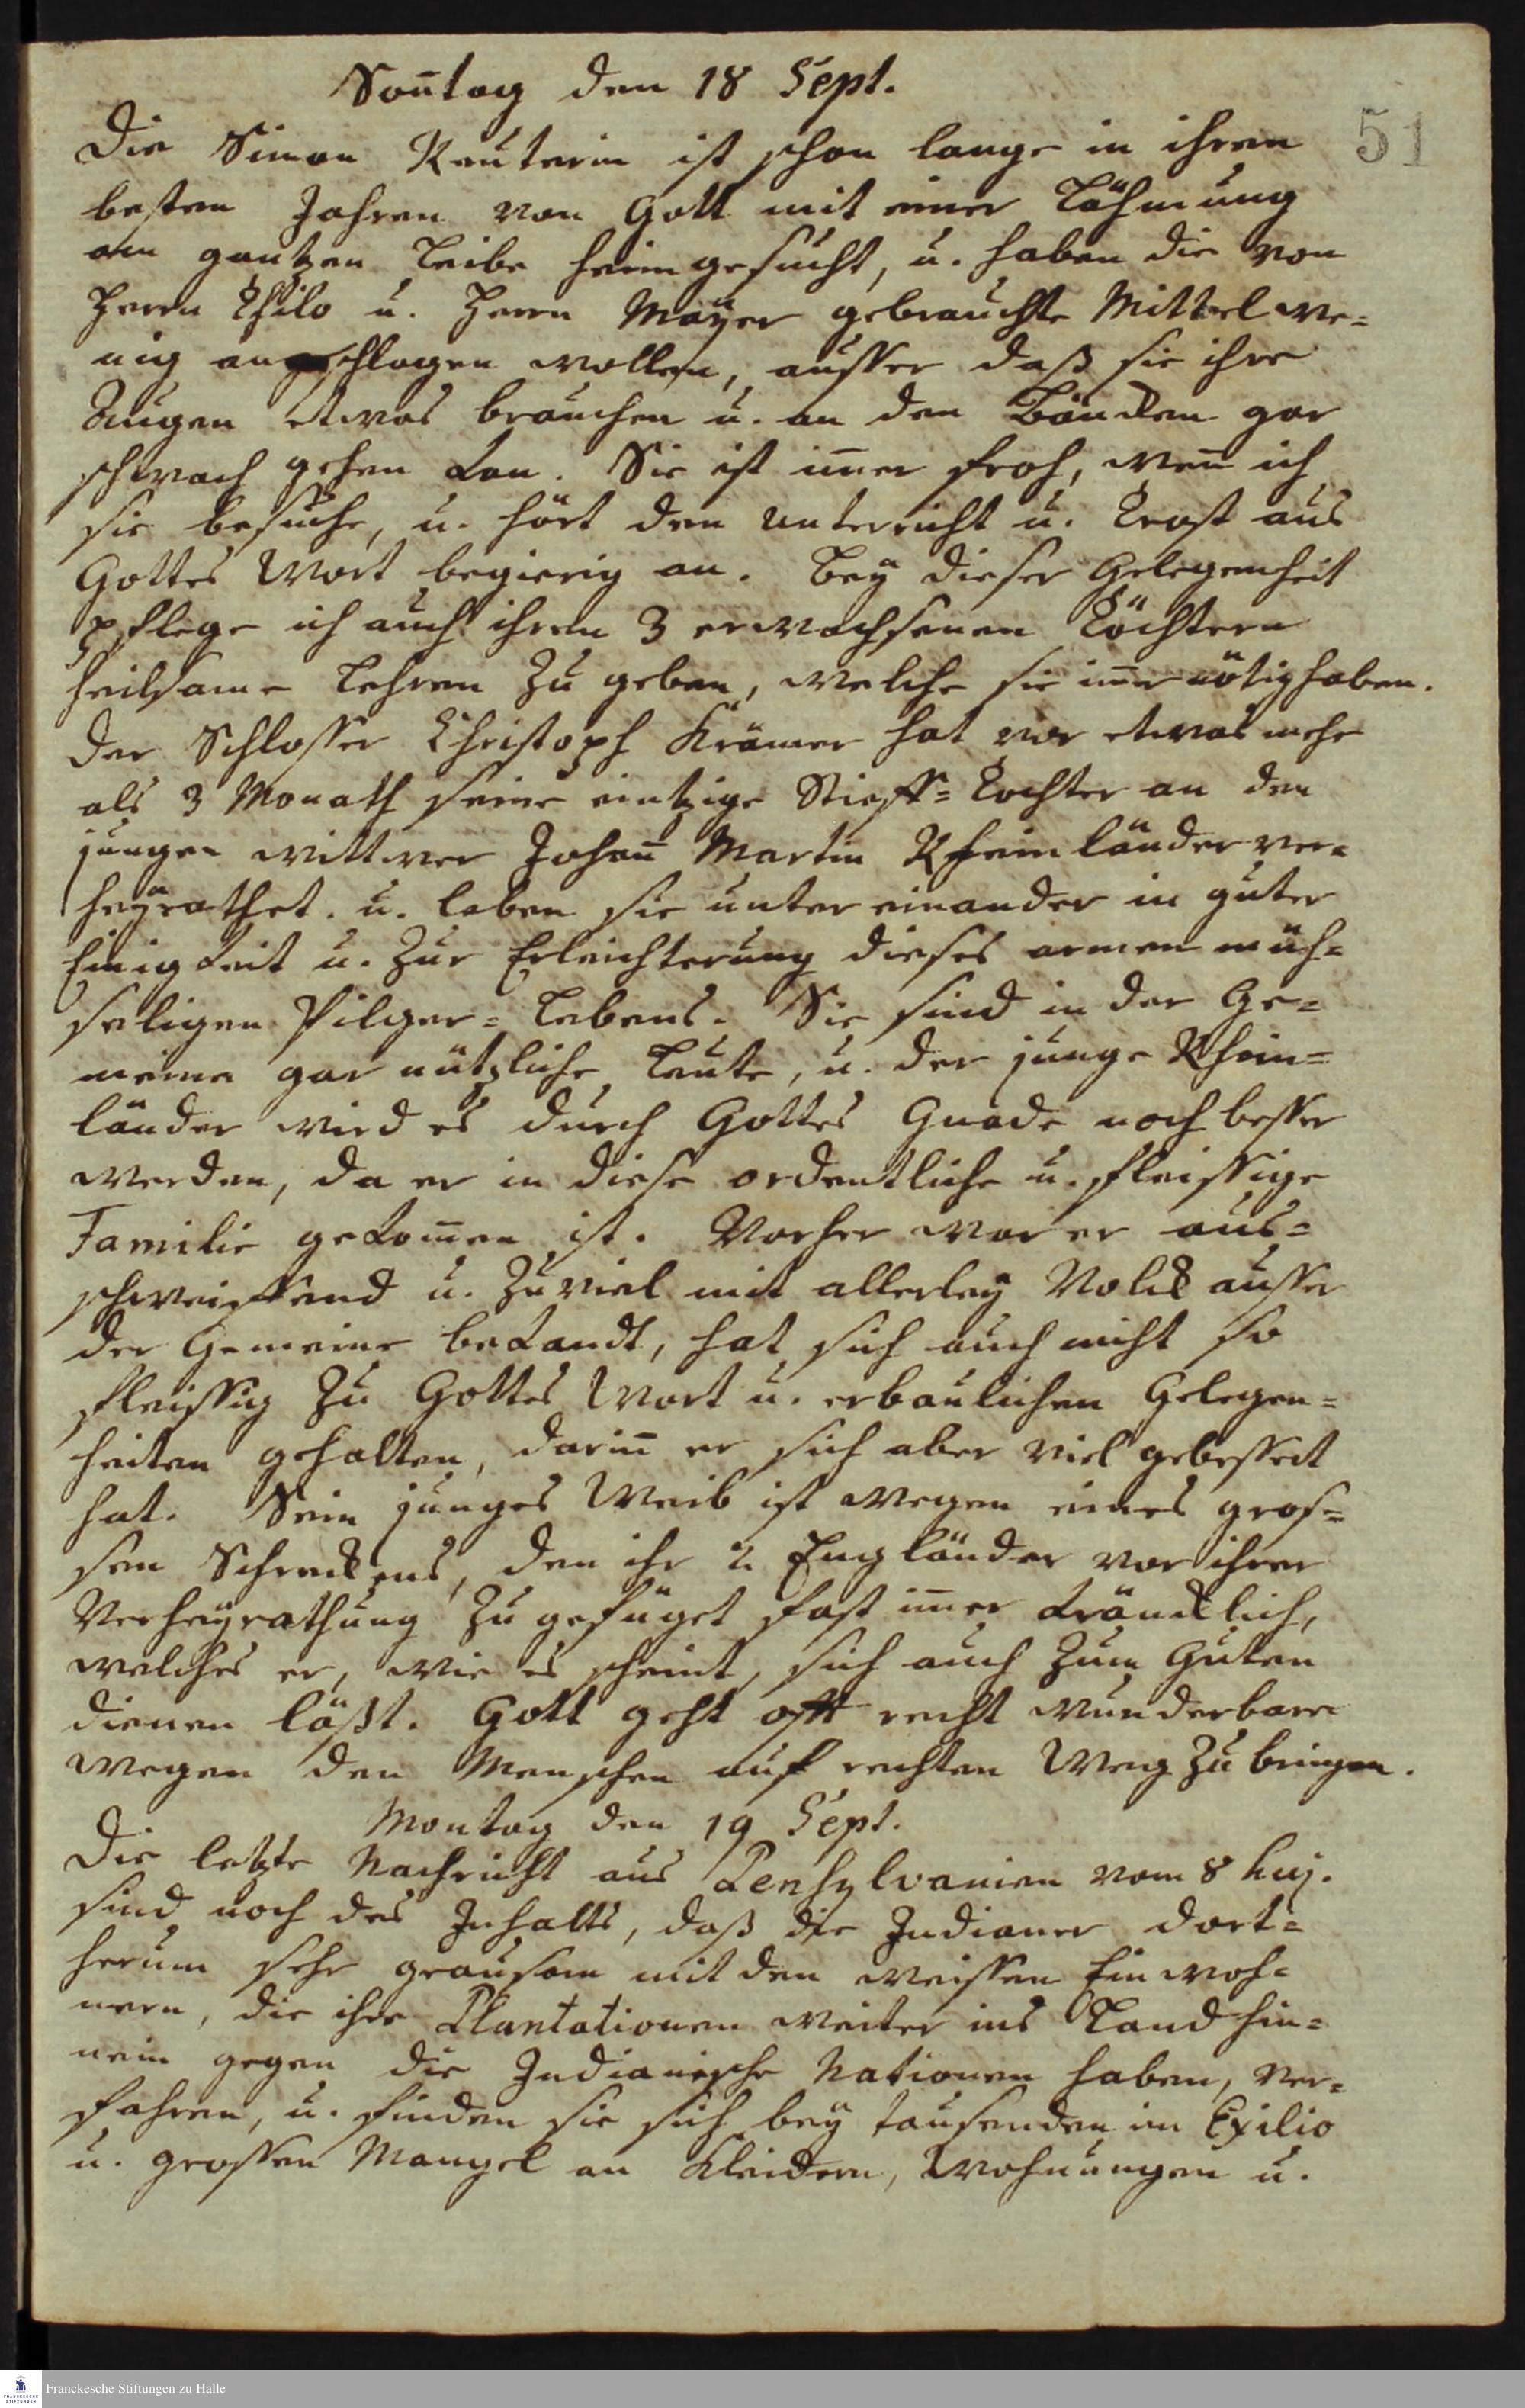 Son̄tag den 18 Sept.
51
Die Simon Reuterin ist schon lange in ihren
besten Jahren von Gott mit einer Lähmung
am gantzen Leibe heimgesucht, u. haben die von
Herrn Thilo u. Herrn Maÿer gebrauchte Mittel we=
nig anschlagen wollen, ausser daß sie ihre
Augen etwas brauchen u. an den Bäncken gar
schwach gehen kan. Sie ist im̄er froh, wen̄ ich
sie besuche, u. hört den Unterricht u. Trost aus
Gottes Wort begierig an. Beÿ dieser Gelegenheit
pflege ich auch ihren 3 erwachsenen Töchtern
heilsame Lehren zu geben, welche sie im̄er nötig haben.
Der Schlosser Christoph Krämer hat vor etwas mehr
als 3 Monath seine eintzige Stieff=Tochter an den
jungen Wittwer Johan̄ Martin Rheinländer ver=
heÿrathet. u. leben sie unter einander in guter
Einigkeit u. zur Erleichterung dieses armen müh=
seligen Pilger=Lebens. Sie sind in der Ge=
meine gar nützliche Leute, u. der junge Rhein=
länder wird es durch Gottes Gnade noch besser
werden, da er in diese ordentliche u. fleissige
Familie gekom̄en ist. Vorher war er aus=
schweiffend u. zu viel mit allerleÿ Volck ausser
der Gemeine bekandt, hat sich auch nicht so
fleissig zu Gottes Wort u. erbaulichen Gelegen=
heiten gehalten, darin̄ er sich aber viel gebessert
hat. Sein junges Weib ist wegen eines gros=
sen Schreckens, den ihr 2 Engländer vor ihrer
Verheÿrathung zugefüget fast im̄er kräncklich,
welches er, wie es scheint, sich auch zum Guten
dienen läßt. Gott geht offt recht wunderbare
Wegen den Menschen auf rechten Weg zu bringen.
Montag den 19 Sept.
Die letzte Nachricht aus Pensylvanien vom 8 huj.
sind noch des Inhalts, daß die Indianer dort=
herum sehr grausam mit den weissen Einwoh=
nern, die ihre Plantationen weiter ins Land hin=
nein gegen die Indianische Nationen haben, ver=
fahren, u. finden sie sich beÿ tausenden im Exilio
u. grossen Mangel an Kleidern, Wohnungen u.
Franckesche Stiftungen zu Halle